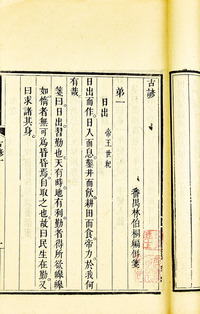 古諺
番禺林伯桐編併箋
第一
日出 帝王世紀
日出而作日入而息鑿井而飲耕田而食帝力於我何
有哉
箋曰日出習勤也天有時地有利勤者得所欲緣緣
如惰者無可為昏昏焉自取之也故曰民生在勤又
曰求諸其身
古諺一